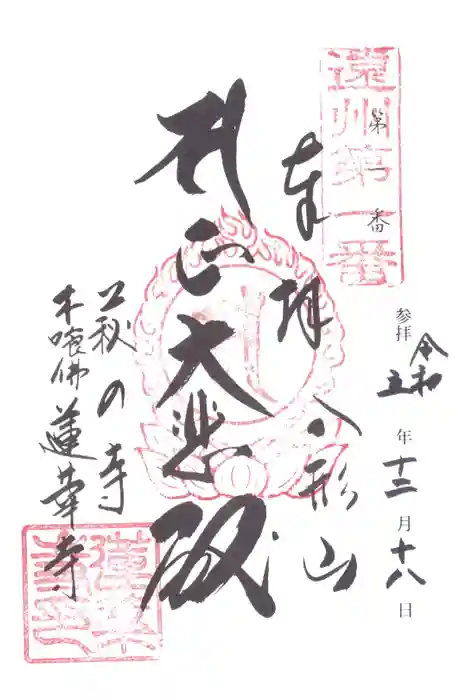 遠州第一番
第 番
参拝 令和五年十二月十八日
奉拝 八形山
聖大悲殿
萩の寺
木喰佛 蓮華寺
蓮華寺